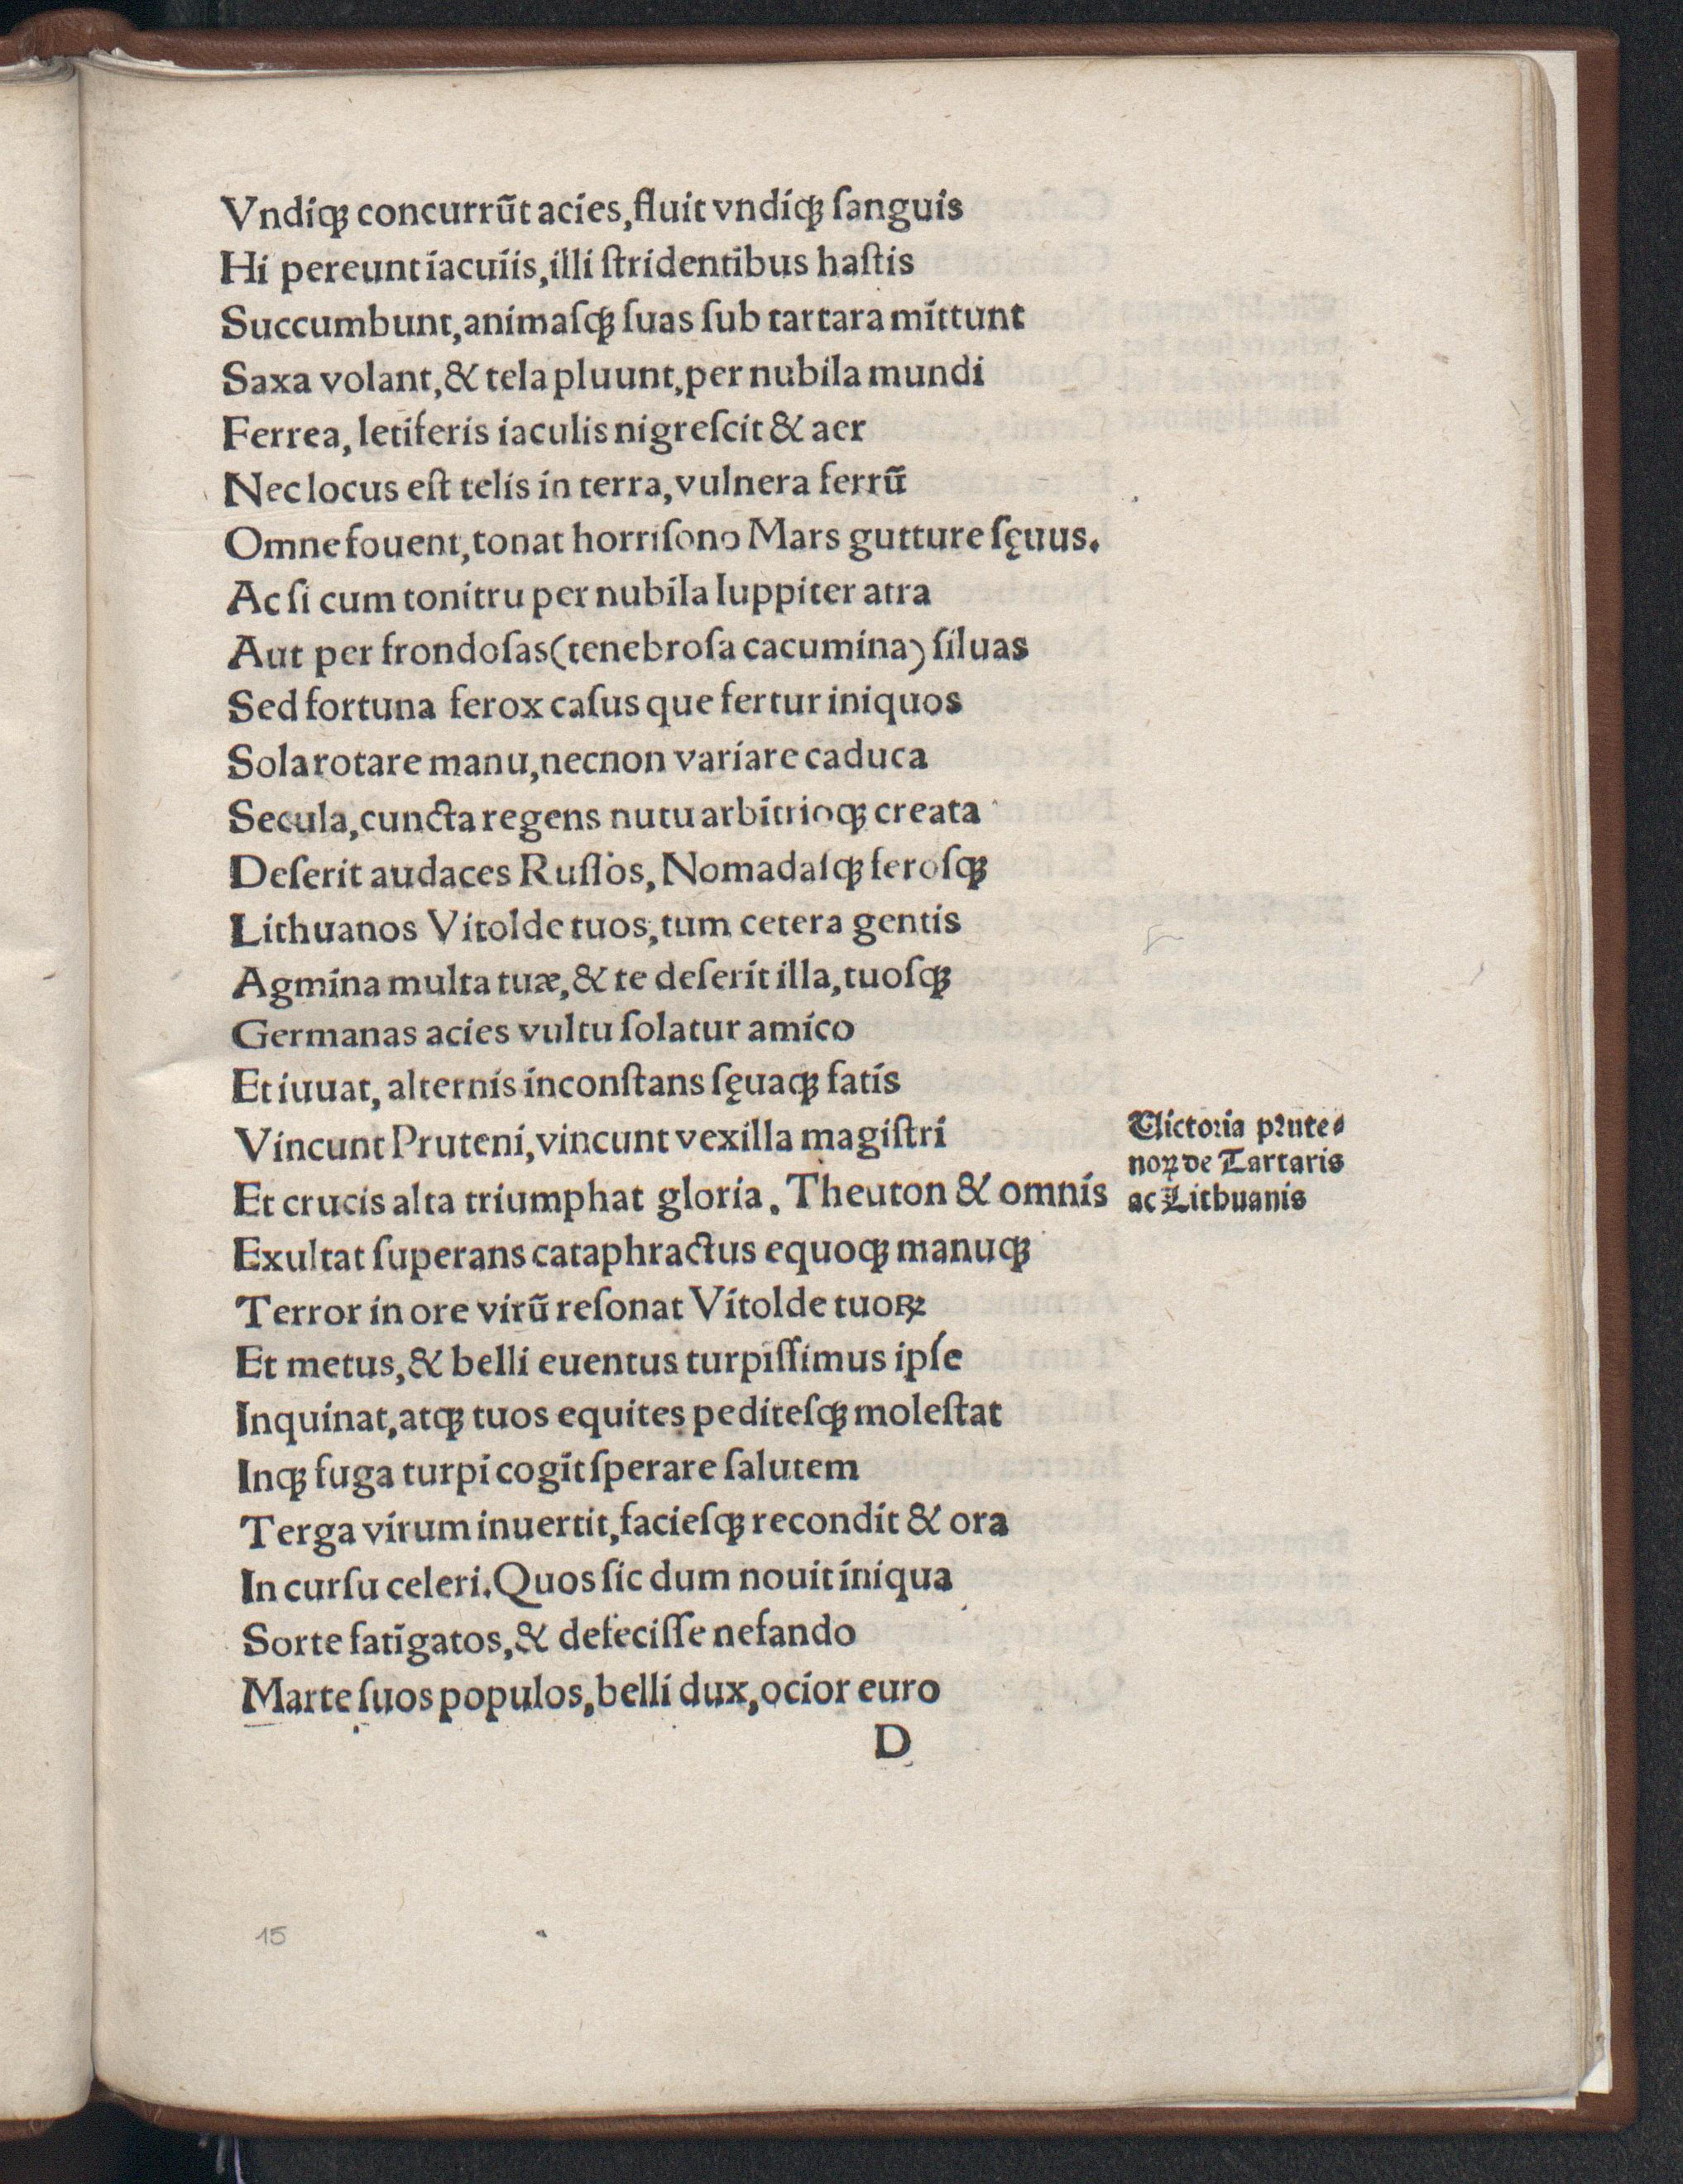 Vndiqꝫ concurrūt acies,fluit vndiqꝫ ſanguis
Hi pereunt iacuiis,illi ſtridentibus haſtis
Succumbunt,animaſqꝫ ſuas ſub tartara mittunt
Saxa volant,& tela pluunt,per nubila mundi
Ferrea, letiferis iaculis nigreſcit & aer
Nec locus eſt telis in terra,vulnera ferrū
Omne fouent,tonat horriſono Mars gutture ſęuus.
Ac ſi cum tonitru per nubila Iuppiter atra
Aut per frondoſas(tenebroſa cacumina) ſiluas
Sed fortuna ferox caſus que fertur iniquos
Sola rotare manu,necnon variare caduca
Secula,cuncta regens nutu arbitrioqꝫ creata
Deſerit audaces Ruſſos, Nomadaſqꝫ feroſqꝫ
Lithuanos Vitolde tuos,tum cetera gentis
Agmina multa tuæ,& te deſerit illa,tuoſqꝫ
Germanas acies vultu ſolatur amico
Et iuuat, alternis inconſtans ſęuaqꝫ fatis
Vincunt Pruteni,vincunt vexilla magiſtri
Et crucis alta triumphat gloria. Theuton & omnis
Exultat ſuperans cataphractus equoqꝫ manuqꝫ
Terror in ore virū reſonat Vitolde tuoꝝ
Et metus,& belli euentus turpiſſimus ipſe
Inquinat,atqꝫ tuos equites pediteſqꝫ moleſtat
Inqꝫ fuga turpi cogit ſperare ſalutem
Terga virum inuertit,facieſqꝫ recondit & ora
In curſu celeri.Quos ſic dum nouit iniqua
Sorte fatigatos,& defeciſſe nefando
Marte ſuos populos,belli dux,ocior euro
D
Victoria prute⸗
noꝝ de Tartaris
ac Lithuanis
15